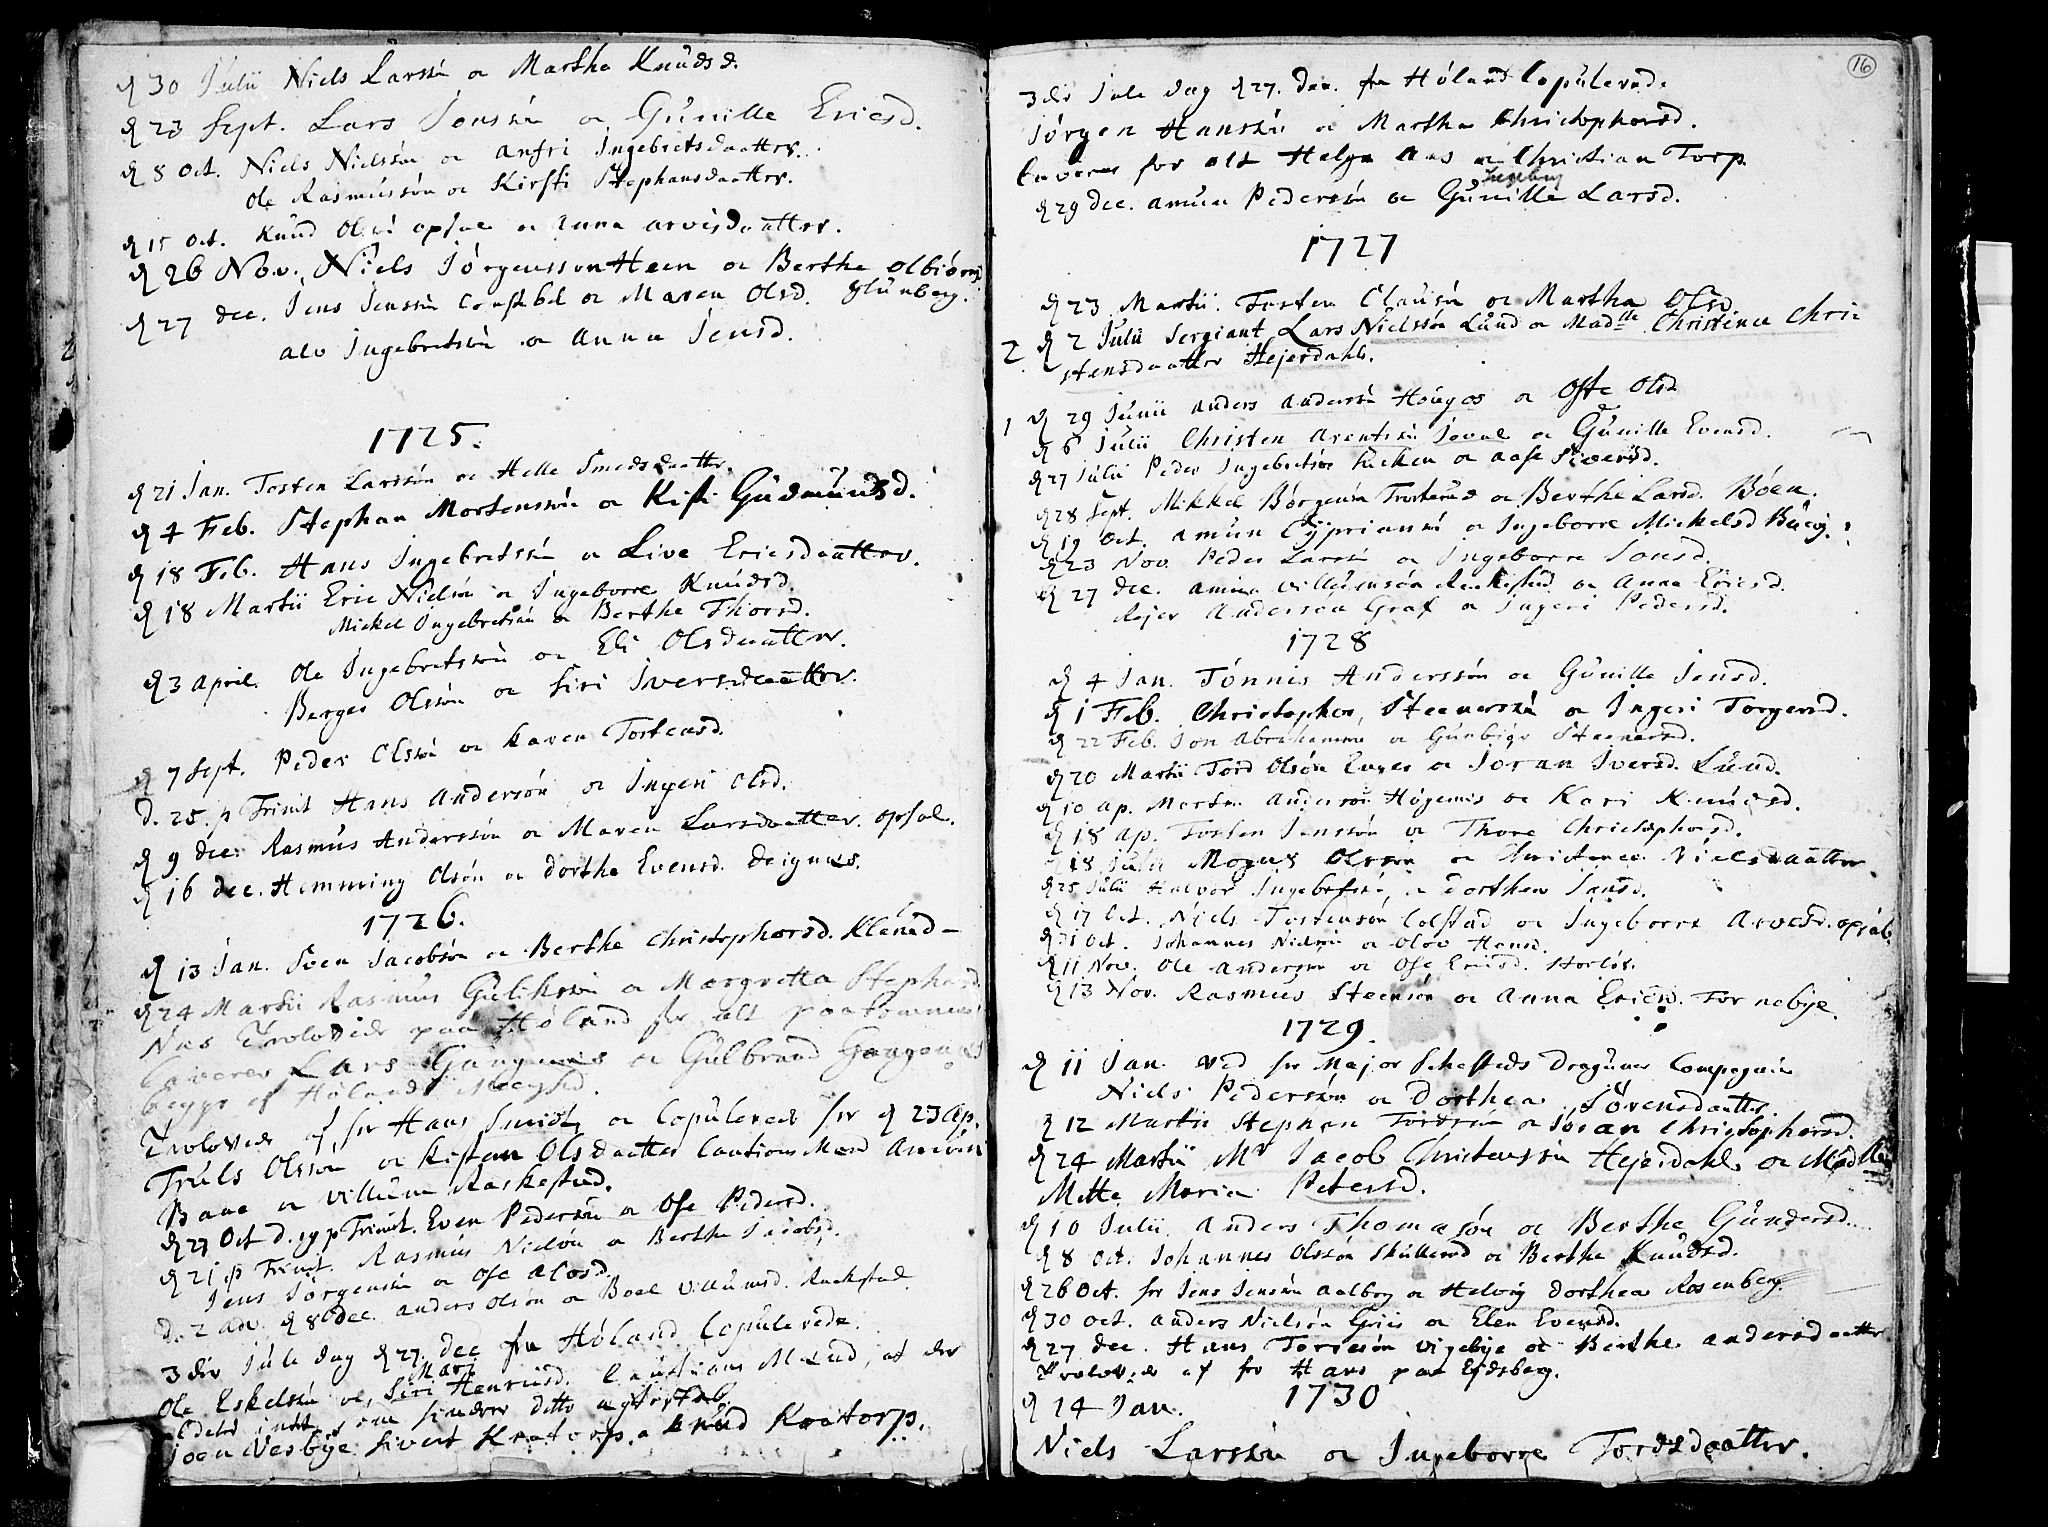 d 30 Julii Niels Larssøn oc Martha Knudsd.
d 23 Sept. Lars Jonssøn oc Gunille Ericsd.
d 8 Oct. Niels Nielssøn oc Anfri Ingebretsdaatter.
Ole Rasmussøn oc Kirsti Stephansdaatter.
d 15 Oct. Knud Olsøn opsal oc Anna arvisdaatter.
d 26 Nov. Niels Jörgenssøn Heen oc Berthe Olbiörns
d 27 dec. Jens Jenssøn Constabel oc Maren Olsd. Glünberg.
alv Ingebretssøn oc Anna Jensd.
1725.
d 21 Jan. Tosten Larssøn oc Helle Smedsdaatter.
d 4 Feb. Stephan Mortenssøn oc Kisti Gudmundsd.
d 18 Feb. Hans Ingebretssøn oc Live Ericsdaatter.
d 18 Martii Eric Nielsøn oc Ingeborre Knudsd.
Mickel Ingebretsøn oc Berthe Thorsd.
d 3 April. Ole Ingebretssøn oc Eli Olsdaatter.
Berger Olssøn oc Siri Iversdaatter.
d 7 Sept. Peder Olssøn oc Karen Tostensd.
D. 25. p Trinit Hans Andersøn oc Ingeri Olsd.
d 9 dec. Rasmus Anderssøn oc Maren Larsdaatter. opsal.
d 16 dec. Hemming Olsøn oc Dorthe Evensd. Daignes.
1726.
d 13 Jan. Sven Jacobsøn oc Berthe Christophersd. Klened-
d 24 Martii Rasmus Gulikssøn oc Margretta Stephansd
Nes Trolovede paa Høland for alt paakommende
Caverer Lars Gangenes oc Gulbrand Gangenes
begge af Hølands
Trolovede af hr Hans Smidt, oc Copulerede hr d 23 Ap.
Truls Olssøn oc Kistan Olsdaatter Cautions Mænd Amun
Bane oc Villum Raskestad.
d 27 Oct D. 19 p Trinit. Even Pedersøn oc Ose Pedersd.
d 21 p Trinit. Rasmus Nielsøn oc Berthe Jacobsd.
Jens Jörgensøn oc Ose Alosd.
D. 2 adv. d 8 Dec. anders Olsøn oc Boel Villumsd. Rackstad
3die Jule dag d 27. Dec fra Høland Copulerede.
Mari
Ole Eskelsøn oc Siri Henrichsd. Cautions Mænd, at der
inted er som hindrer ditto
Joen Nesbye Sivert Kratorp. a Knud Kratorp.
16
3die Jule dag d 27. Dec. fra Høland Copulerede
Jörgen Hanssøn oc Martha Christophersd.
Caverer for alt Helge Aas oc Christian Torp
Ingeborg
d 29 Dec. Amun Pederssøn oc Gunille Larsd.
1727
d 23 Martii. Tosten Clausøn oc Martha Olsd
2 d 2 Julii Sergiant Lars Nielssøn Lund oc Madlle Christina Chri-
stensdaatter Hejerdahl.
1 d 29 Junii Anders Anderssøn Hougos oc Oste Olsd
d 6 Julii Christen Arentssøn Joval oc Gunille Evensd.
d 27 Julii Peder Ingebretsøn Kieken oc Aase Siversd.
d 28 Sept. Mikkel Börgersøn Trosterud oc Berthe Larsd. Böen.
d 19 Oct. Amun Cÿprianssøn oc Ingeborre Mickelsd
d 23 Nov. Peder Larssøn oc Ingeborre Jonsd.
d 27 Dec. Amun Villumsøn Raskestad oc Anna Ericsd.
Rejer Anderson Graf oc Ingeri Pedersd.
1728
d 4 Jan. Tönnis Anderssøn oc Gunille Jensd.
d 1 Feb. Christopher Steenerssøn oc Ingeri Torgersd.
d 22 Feb. Jon Abrahamsøn oc Gunbiör Steenersd.
d 20 Martii Tord Olsøn Enger oc Joran Iversd. Lund.
d 10 Ap. Morten Andersøn Högenæs oc Kari Knudsd.
d 18 Ap. Tosten Jenssøn oc Thore Christophersd.
d 18 Julii Mogns Olssøn oc Christence Nielsdaatter
d 25 Julii Halvor Ingebretsøn, oc Dorthea Jansd.
d 17 Oct. Niels Tostensøn Colstad oc Ingeborre Arvesd. opsal.
d 31 Oct. Johannes Nielsøn oc Olov Hansd.
d 11 Nov. Ole Andersøn oc Ose Ericsd.
d 13 Nov. Rasmus Steensøn oc Anna Ericsd. Tornebye.
1729.
d 11 Jan. ved hr Major Schesteds Dragune Compagnie
Niels Pedersøn oc Dorthea Sörensdaatter.
d 12 Martii Stephen Tordsøn oc Joran Christophersd.
d 24 Martii Mr Jacob Christenssøn Hejerdahl oc Madlle
Mette Maria Petersd.
d 10 Julii Anders Thomasøn oc Berthe Gundersd.
d 8 Oct. Johannes Olssøn Skullerud oc Berthe Knudsd.
d 26 Oct. hr Jens Jensøn Aalborg oc Helvig Dorthea Rosenberg.
d 30 Oct. Anders Nielsøn Gries oc Elen Evensd.
d 27 Dec. Hans Torersøn Vigebye oc Berthe Andersdaatter
Trolovede af hr Hans paa Ejdsberg.
1730
d 14 Jan.
Niels Larssøn oc Ingeborre Tordsdaatter.